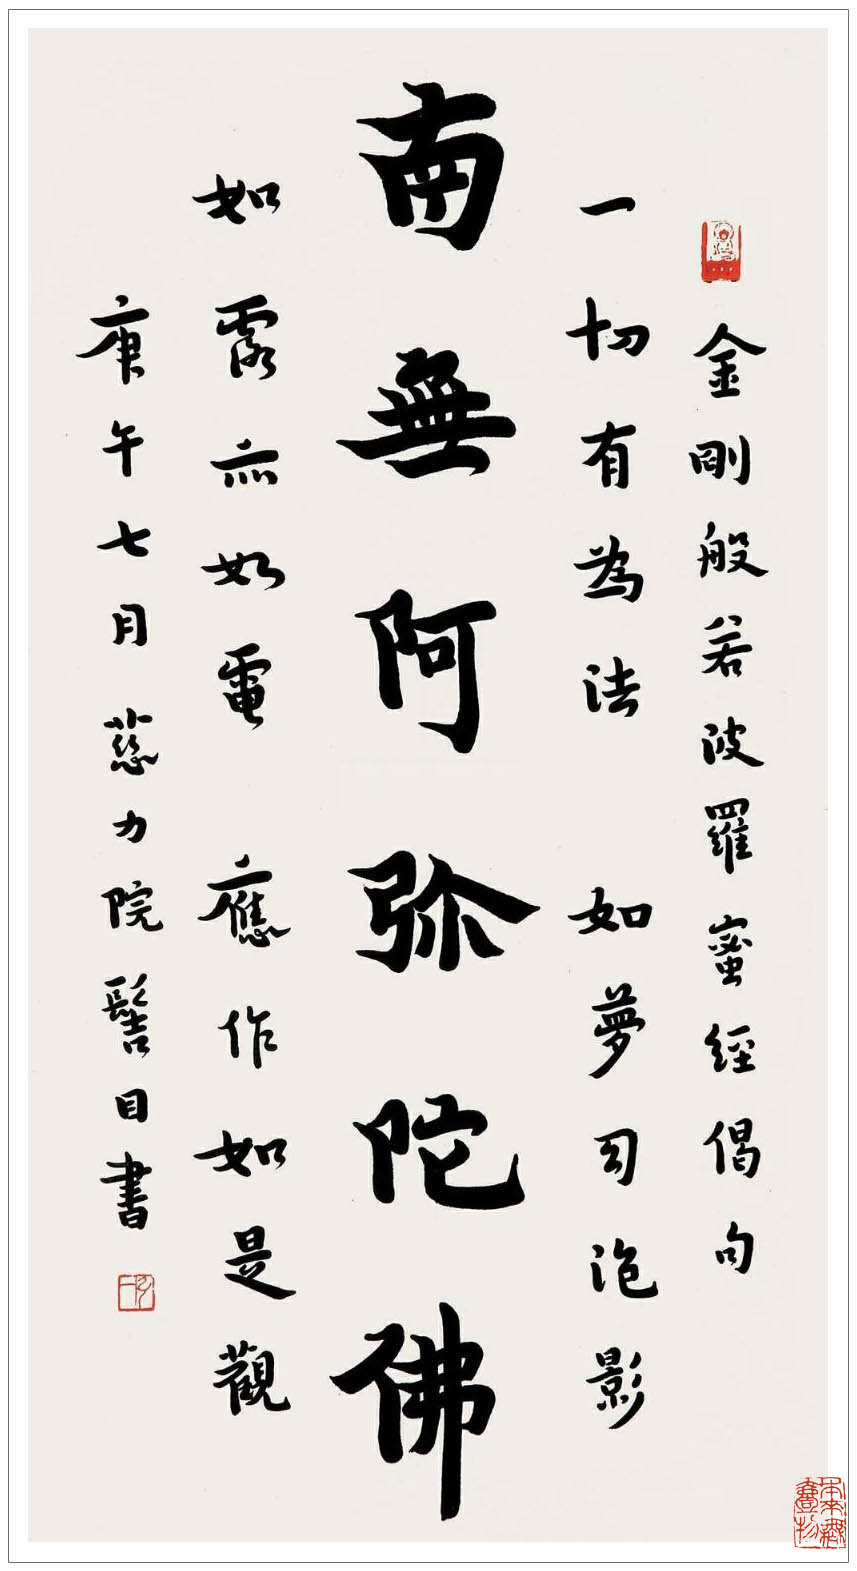 金剛般若波羅蜜經偈句
一切有為法 如夢幻泡影
南無阿弥陀佛
如露亦如電 應作如是觀
庚午七月 慈力院髻目書
弘一
本來無壹物